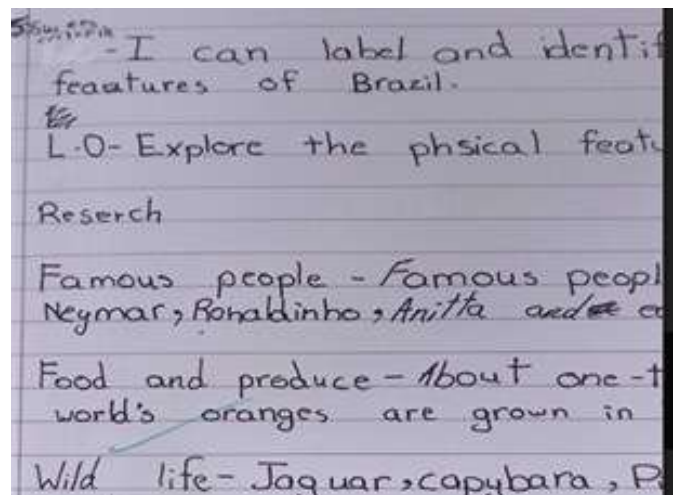 - I can label and identif
feautures of Brazil.
L.O- Explore the phsical featu
Reserch
Famous people - Famous peopl
Neymar, Ronaldinho, Anitta and
Food and produce - About one-t
world's oranges are grown in
Wild life- Jaguar, capybara, Pa